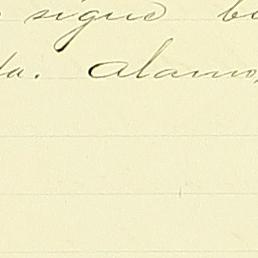 sigue
da. Alamo,